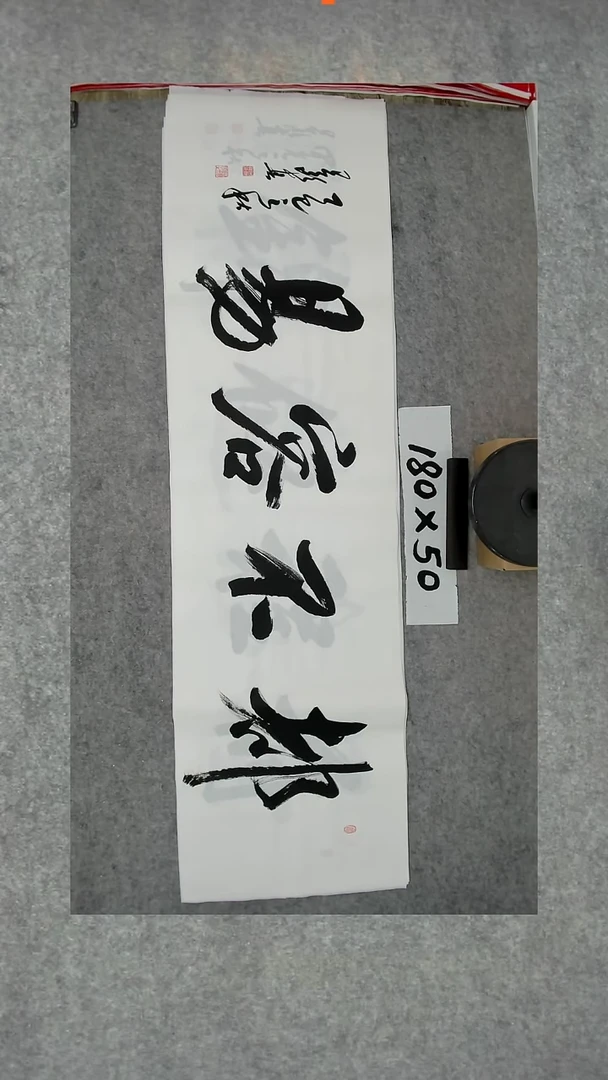 都不容易
180×50